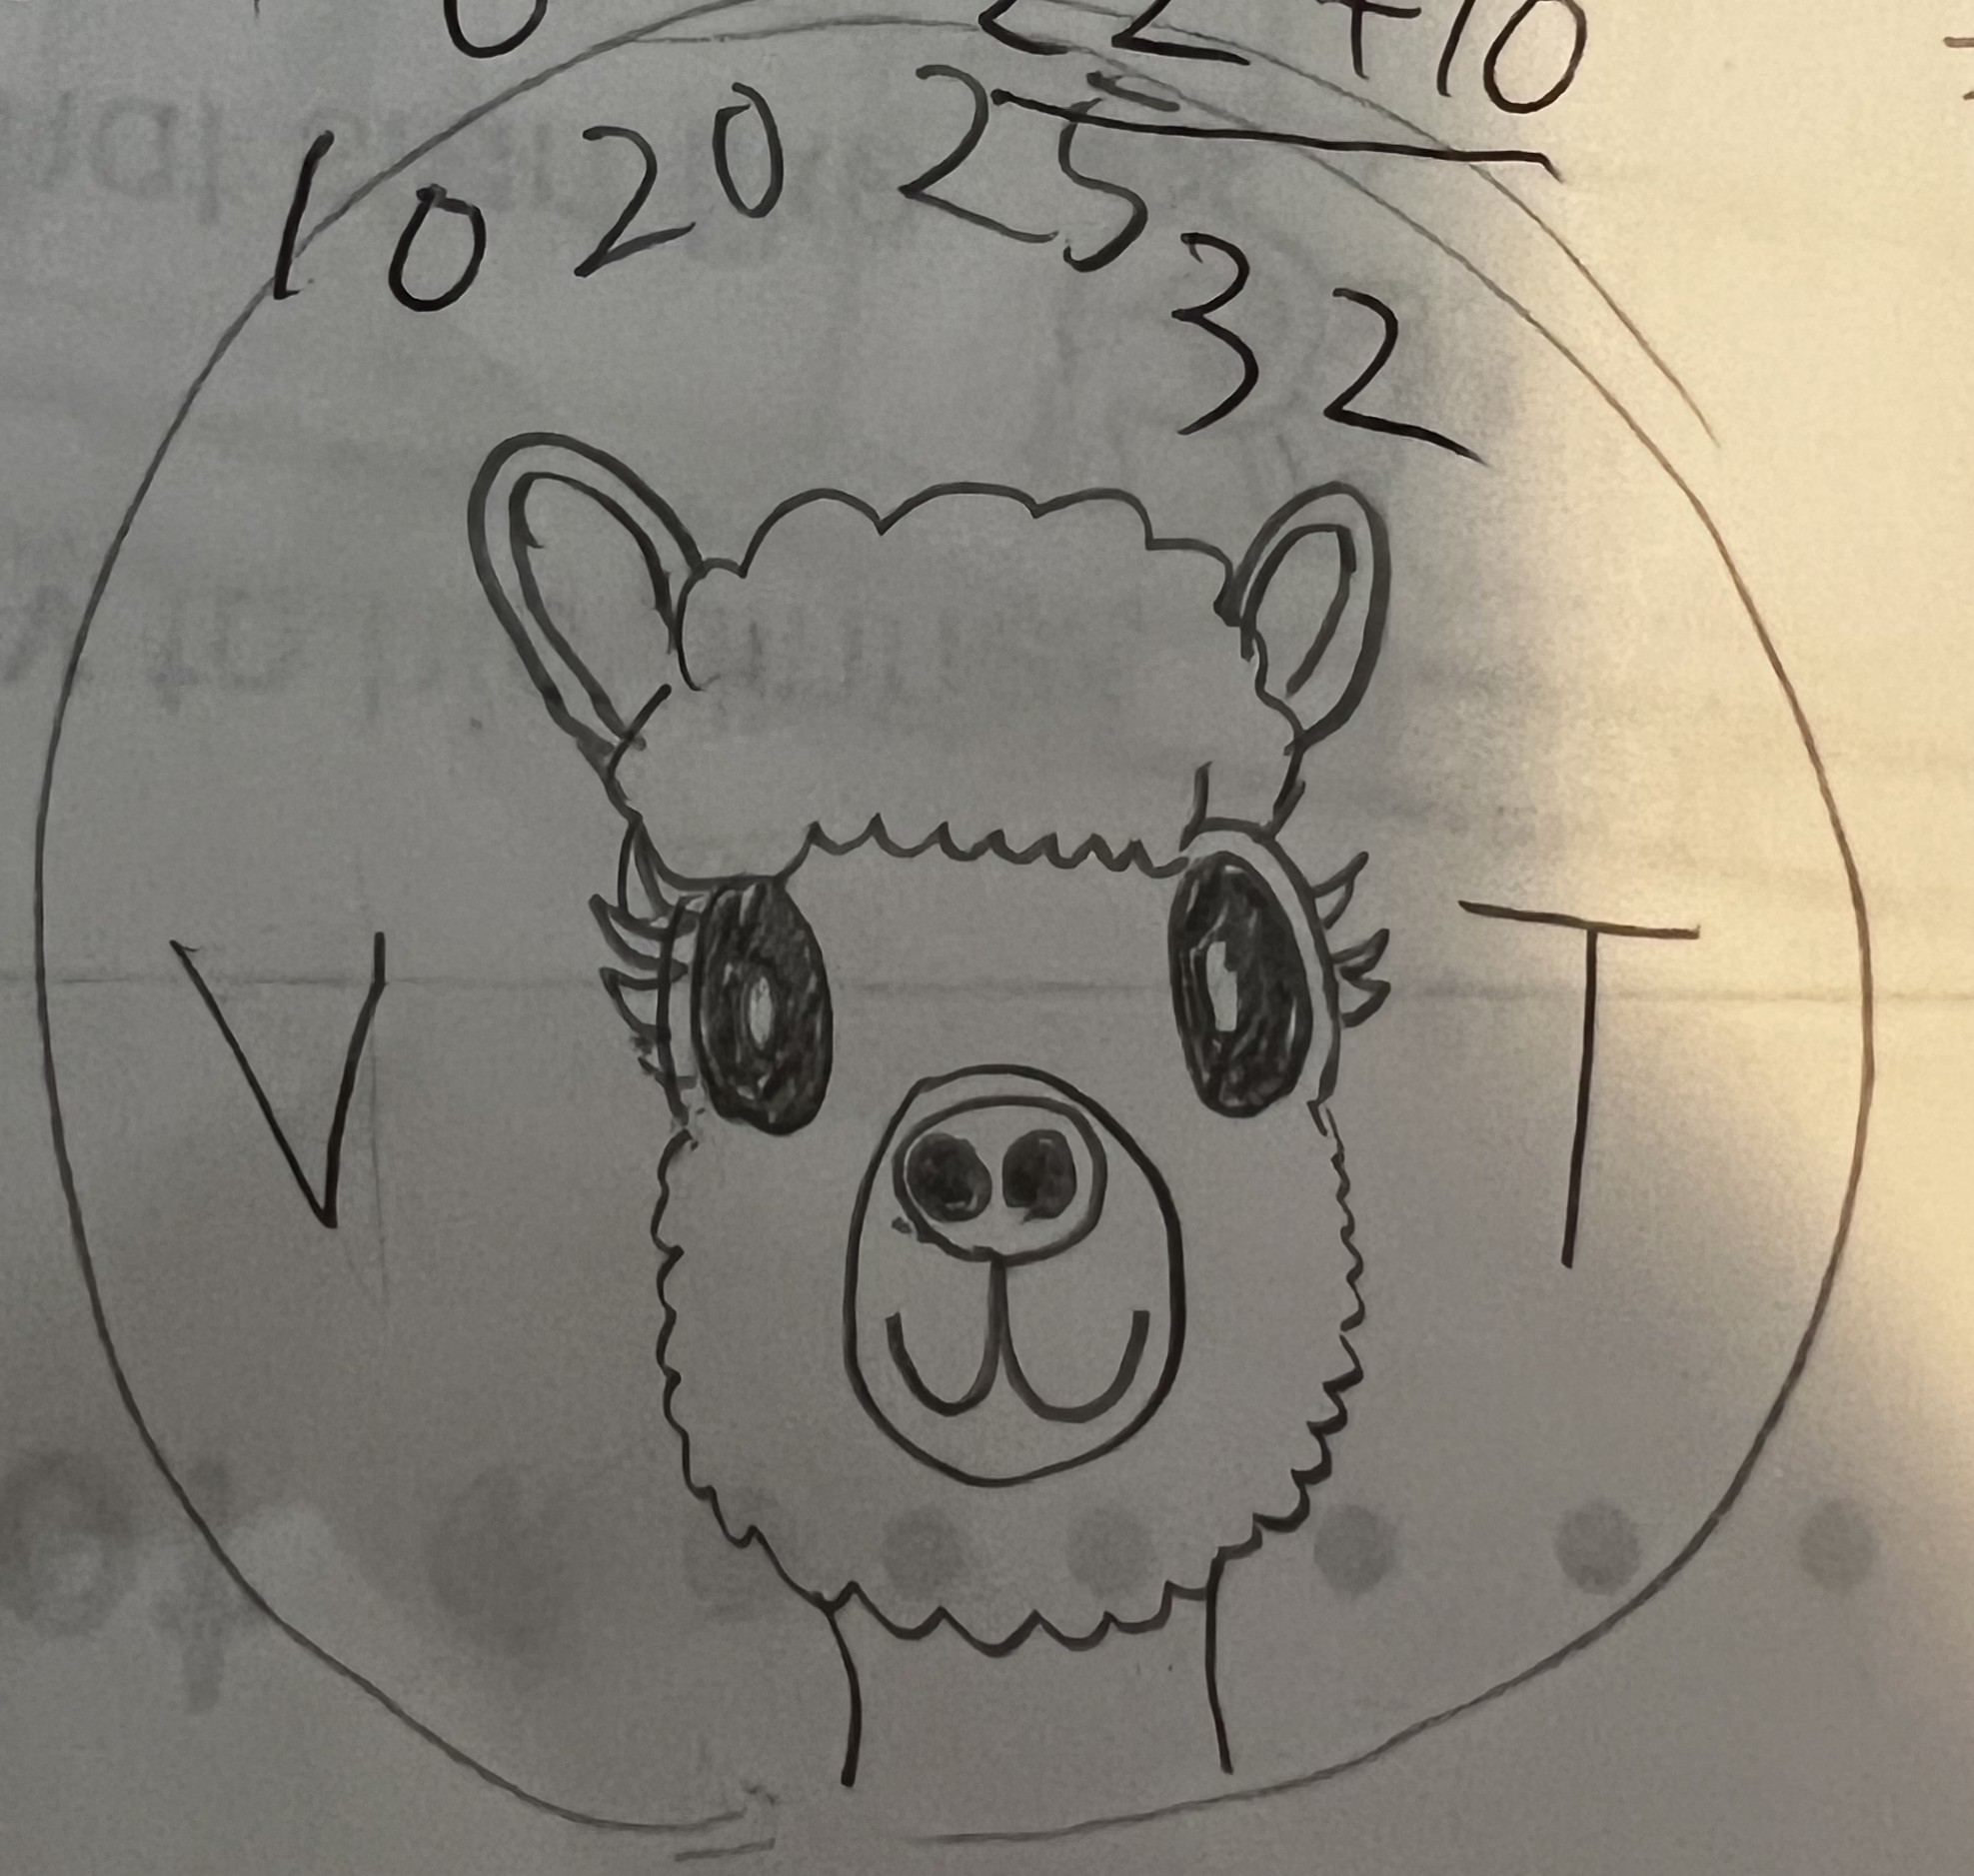 22 + 10
10 20 25 32
V T